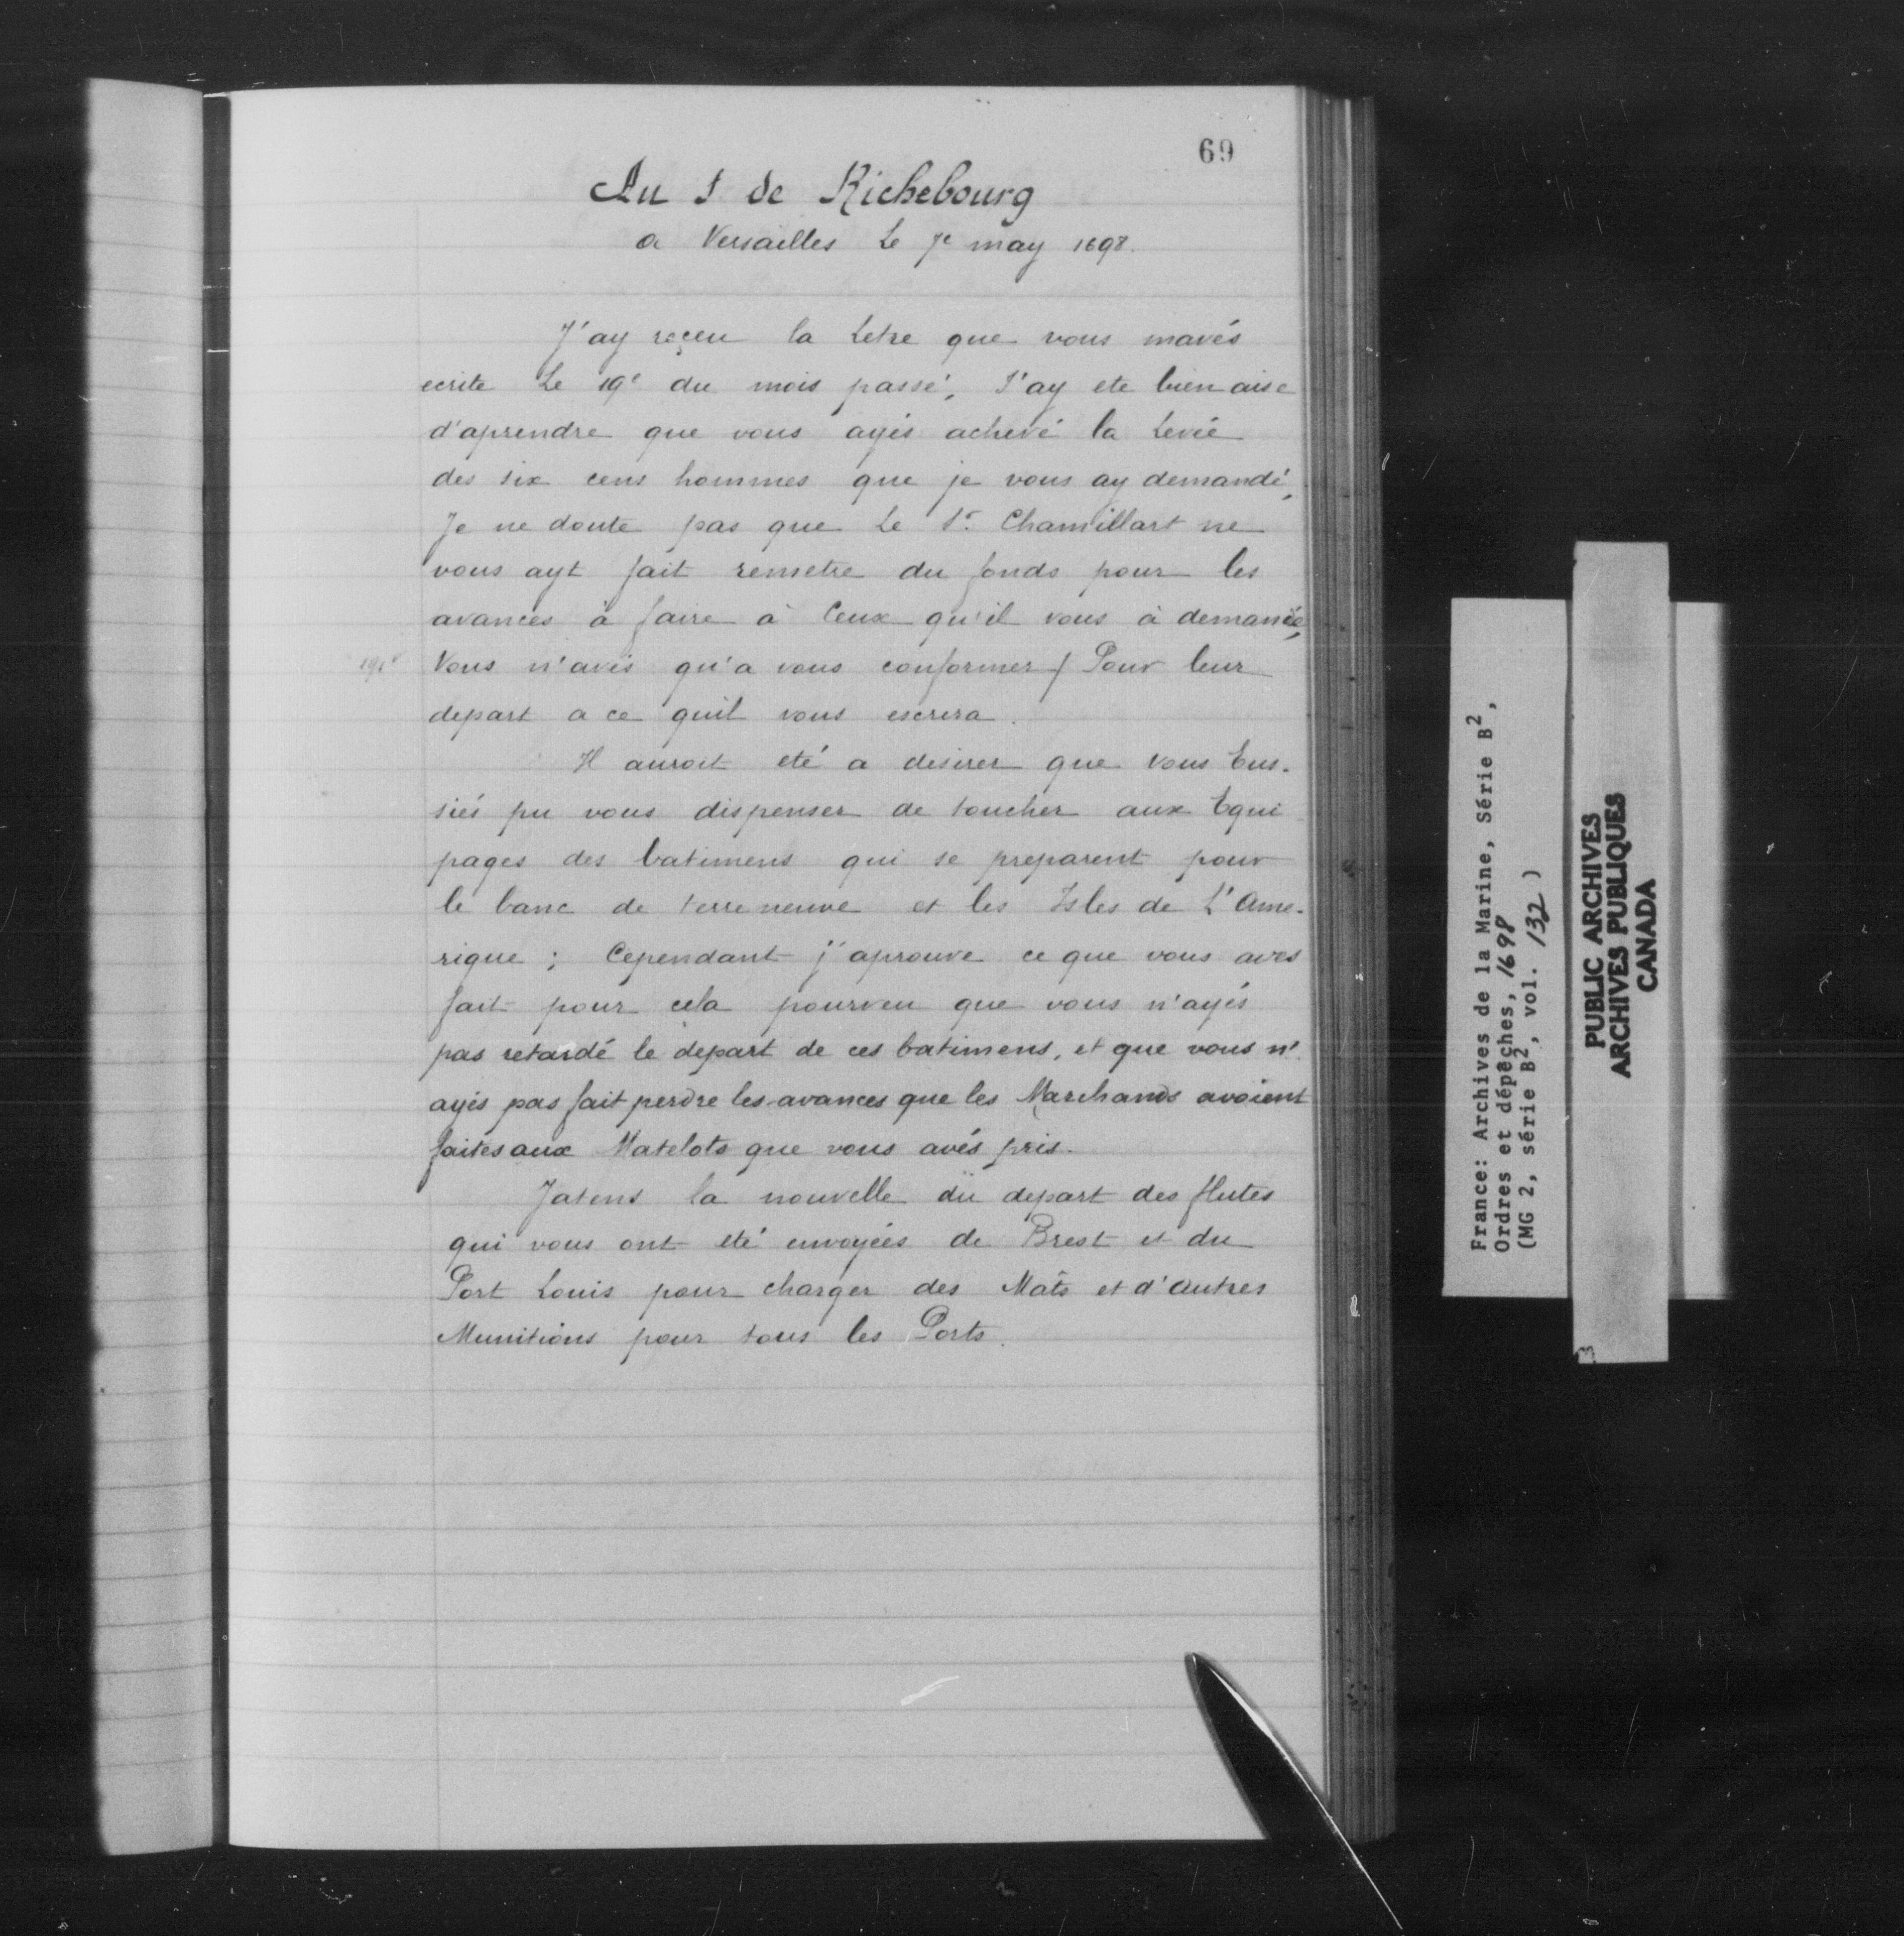 69
Au S de Richebourg
a Versailles Le 7e may 1698.
J'ay reçeu la Letre que vous mavés
ecrite Le 19e du mois passé, J'ay ete bien aise
d'aprendre que vous ayés achevé la Levée
des six cens hommes que je vous ay demandé,
Je ne doute pas que Le Sr. Chamillart ne
vous ayt fait remetre du fonds pour les
avances à faire à Ceux qu'il vous à demandé,
191v Vous n'avés qu'a vous conformer / Pour leur
depart a ce quil vous escrira.
Il auroit eté a desirer que vous Eus-
siés pu vous dispenser de toucher aux Equi
pages des batimens qui se preparent pour
le banc de terre neuve et les Isles de L'Ame-
rique ; Cependant j'aprouve ce que vous aves
fait pour cela pourveu que vous n'ayés
pas retardé le depart de ces batimens, et que vous n'
ayés pas fait perdre les avances que les Marchands avoient
faites aux Matelots que vous avés pris.
Jatens la nouvelle du depart des flutes
qui vous ont eté envoyées de Brest et du
Port Louis pour charger des Mâts et d'autres
Munitions pour tous les Ports.
France: Archives de la Marine, Série B2,
Ordres et dépêches, 1698
(MG 2, série B2, vol. 132)
PUBLIC ARCHIVES
ARCHIVES PUBLIQUES
CANADA
3